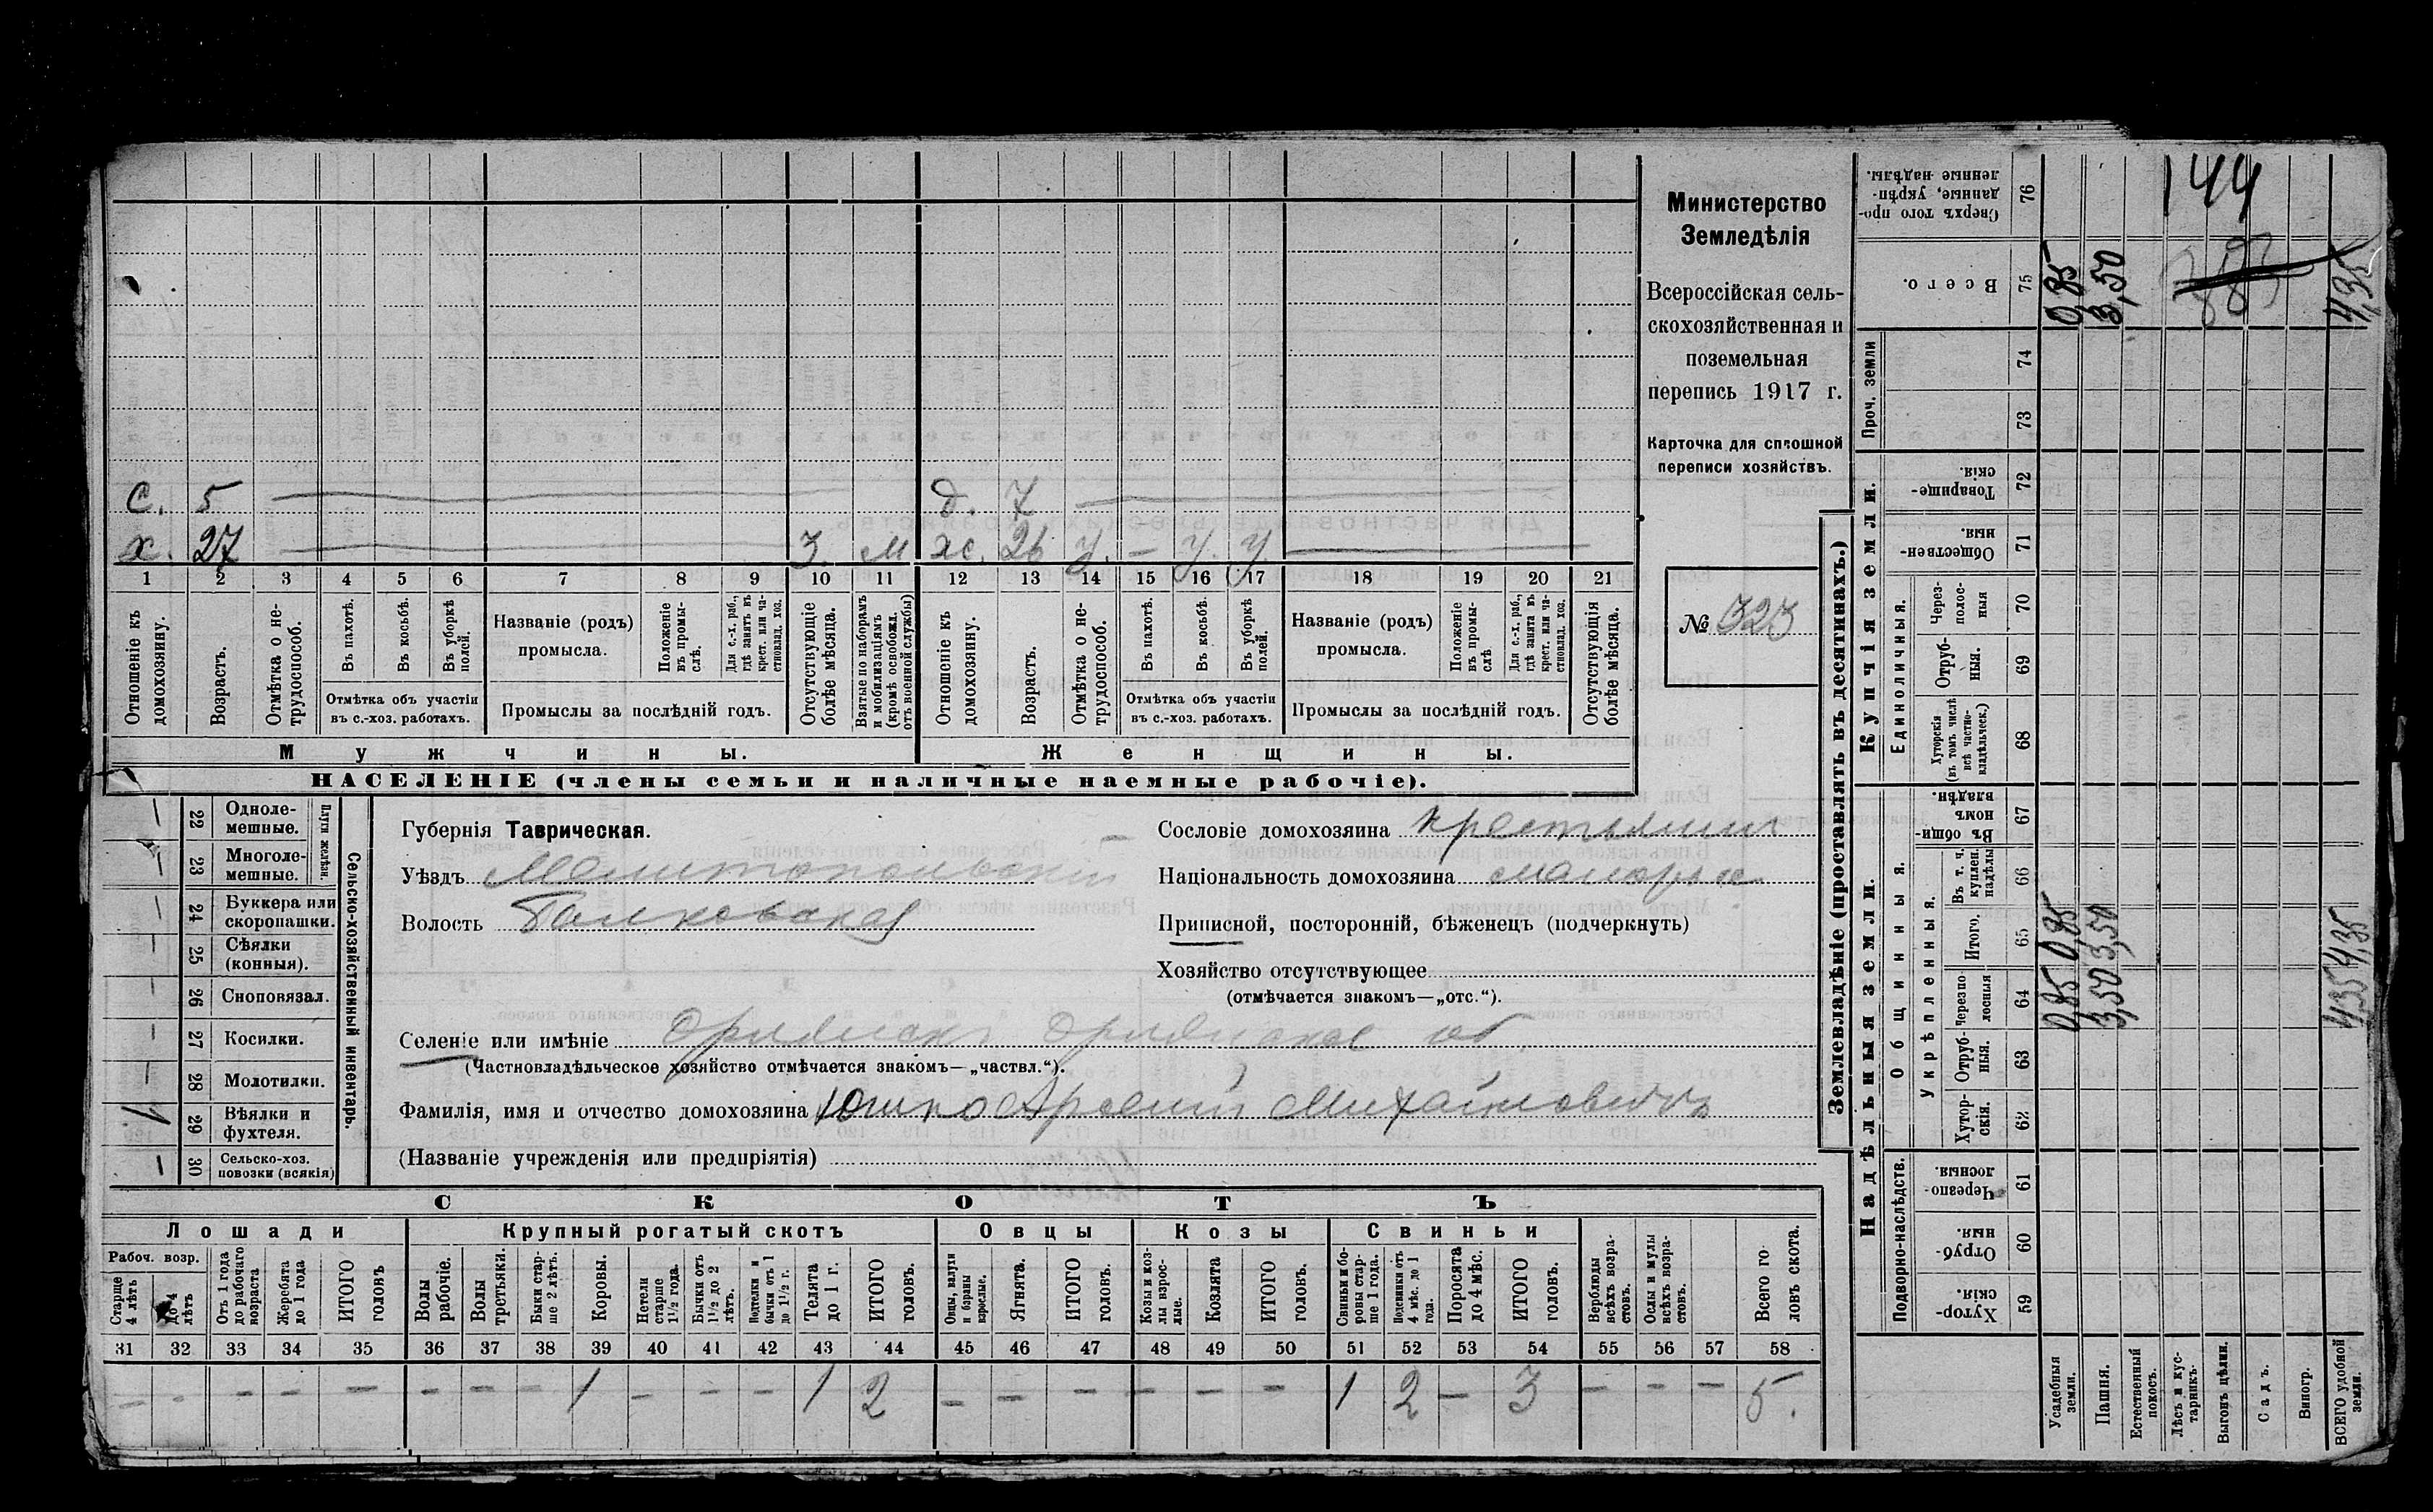 с. 5 д. 7
х. 27 3. м хс. 26 у. – у. у
1 2 3 4 5 6 7 8 9 10 11 12 13 14 15 16 17 18 19 20 21
Отношеніе къ домохозяину.
Возрастъ.
Отмѣтка о не-трудоспособ.
Въ пахотѣ.
Въ косьбѣ.
Въ уборкѣ полей.
Отмѣтка объ участіи
въ с.-хоз. работахъ.
Названіе (родъ)
промысла.
Положеніе въ промы-слѣ.
Для с.-х. раб., гдѣ занятъ въ крест. или ча-стновлад. хоз.
Промыслы за послѣдній годъ.
Отсутствующіе болѣе мѣсяца.
Взятые по наборамъ и мобилизаціямъ (кромѣ освобожд. отъ военной службы)
Отношеніе къ домохозяину.
Возрастъ.
Отмѣтка о не-трудоспособ.
Въ пахотѣ.
Въ косьбѣ.
Въ уборкѣ полей.
Отмѣтка объ участіи
въ с.-хоз. работахъ.
Названіе (родъ)
промысла.
Положеніе въ промы-слѣ
Для с.-х. раб., гдѣ занята въ крест. или ча-стновлад. хоз.
Промыслы за послѣдній годъ.
Отсутствующія болѣе мѣсяца.
Мужчины. Женщины.
НАСЕЛЕНІЕ (члены семьи и наличные наемные рабочіе).
Министерство
Земледѣлія
Всероссійская сель-
скохозяйственная и
поземельная
перепись 1917 г.
Карточка для сплошной
переписи хозяйствъ.
№ 323
22 Одноле-
мешные.
23 Многоле-
мешные.
Плуги желѣзн.
24 Буккера или
скоропашки.
25 Сѣялки
(конныя).
26 Сноповязал.
27 Косилки.
28 Молотилки.
29 Вѣялки и
фухтеля.
30 Сельско-хоз.
повозки (всякія)
Сельско-хозяйственный инвентарь.
Губернія Таврическая.
Уѣздъ Мелитопольскій
Волость
Сословіе домохозяина крестьянин
Національность домохозяина малорос
Приписной, посторонній, бѣженецъ (подчеркнуть)
Хозяйство отсутствующее
(отмѣчается знакомъ—„отс.“).
Селеніе или имѣніе
(Частновладѣльческое хозяйство отмѣчается знакомъ—„частвл.“).
Фамилія, имя и отчество домохозяина Юшко Арсений Михайловичъ
(Названіе учрежденія или предпріятія)
СКОТЪ
Лошади Крупный рогатый скотъ Овцы Козы Свиньи
Рабоч. возр.
Старше 4 лѣтъ
до 4 лѣтъ
Отъ 1 года до рабочаго возраста
Жеребята до 1 года
ИТОГО головъ
Волы рабочіе.
Волы третьяки.
Быки стар-ше 2 лѣтъ.
Коровы.
Нетели старше 1½ года.
Бычки отъ 1½ до 2 лѣтъ.
Подтелки и бычки отъ 1 до 1½ г.
Телята до 1 г.
ИТОГО головъ.
Овцы, валухи и бараны взрослые.
Ягнята.
ИТОГО головъ.
Козы и коз-лы взрос-лые.
Козлята
ИТОГО головъ.
Свиньи и бо-ровы стар-ше 1 года.
Подсвинки отъ 4 мѣс. до 1 года.
Поросята до 4 мѣс.
ИТОГО головъ.
Верблюды всѣхъ возра-стовъ.
Ослы и мулы всѣхъ возра-стовъ.
Всего го-ловъ скота.
31 32 33 34 35 36 37 38 39 40 41 42 43 44 45 46 47 48 49 50 51 52 53 54 55 56 57 58
– – – – – – – – 1 – – – 1 2 – – – – – – 1 2 – 3 – – – 5.
Землевладѣніе (проставлять въ десятинахъ.)
Надѣльныя земли.
Купчія земли.
Проч. земли
Подворно-наслѣдств.
Общинныя.
Укрѣпленныя.
Единоличныя.
Хутор-скія. 59
Отруб-ныя. 60
Черезпо-лосныя. 61
Хутор-скія. 62
Отруб-ныя. 63
Черезпо-лосныя 64
Итого. 65
Въ т. ч. куплен. надѣлы 66
Въ общин-номъ владѣн. 67
Хуторскія (въ томъ числѣ всѣ частно-владѣльческ.) 68
Отруб-ныя. 69
Через-полос-ныя 70
Обществен-ныя. 71
Товарище-скія. 72
73
74
Всего. 75
Сверхъ того про-данные, укрѣп-ленные надѣлы. 76
Усадебныя земли. 0,85 0,85 0,85
Пашня. 3,50 3,50 3,50
Естественный покосъ.
Лѣсъ и кус-тарникъ.
Выгонъ цѣлин.
Садъ.
Виногр.
ВСЕГО удобной земли. 4,35 4,35 4,35
144